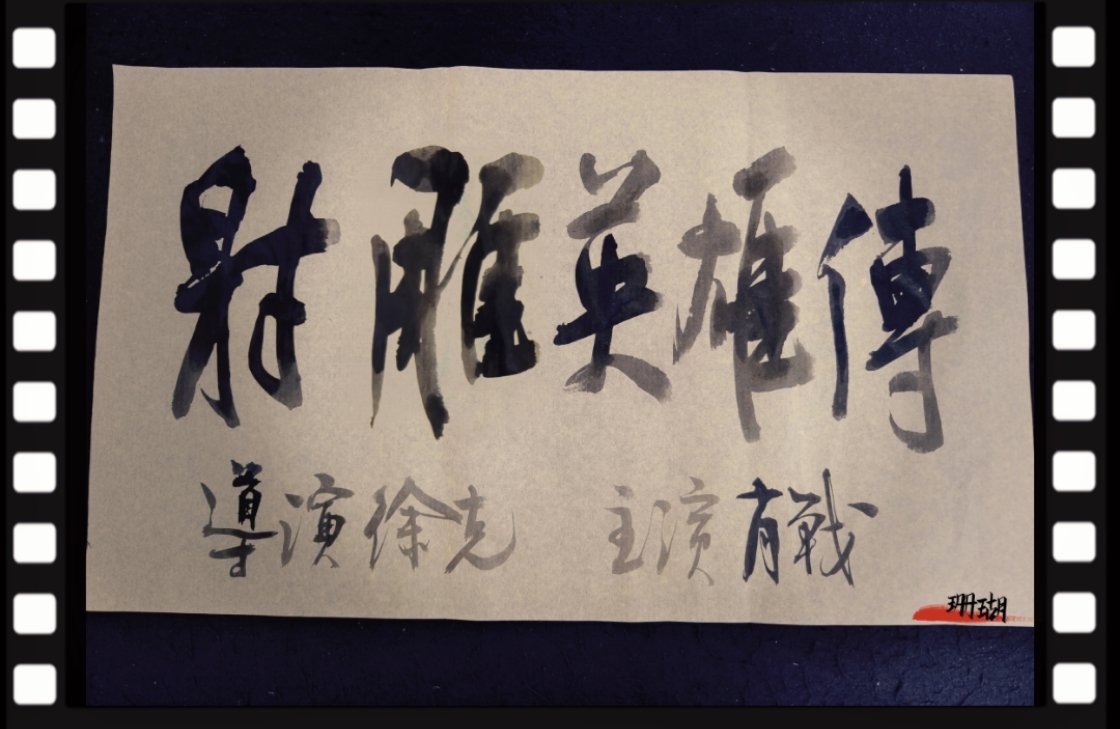 射雕英雄傳
導演徐克 主演肖戰
珊瑚